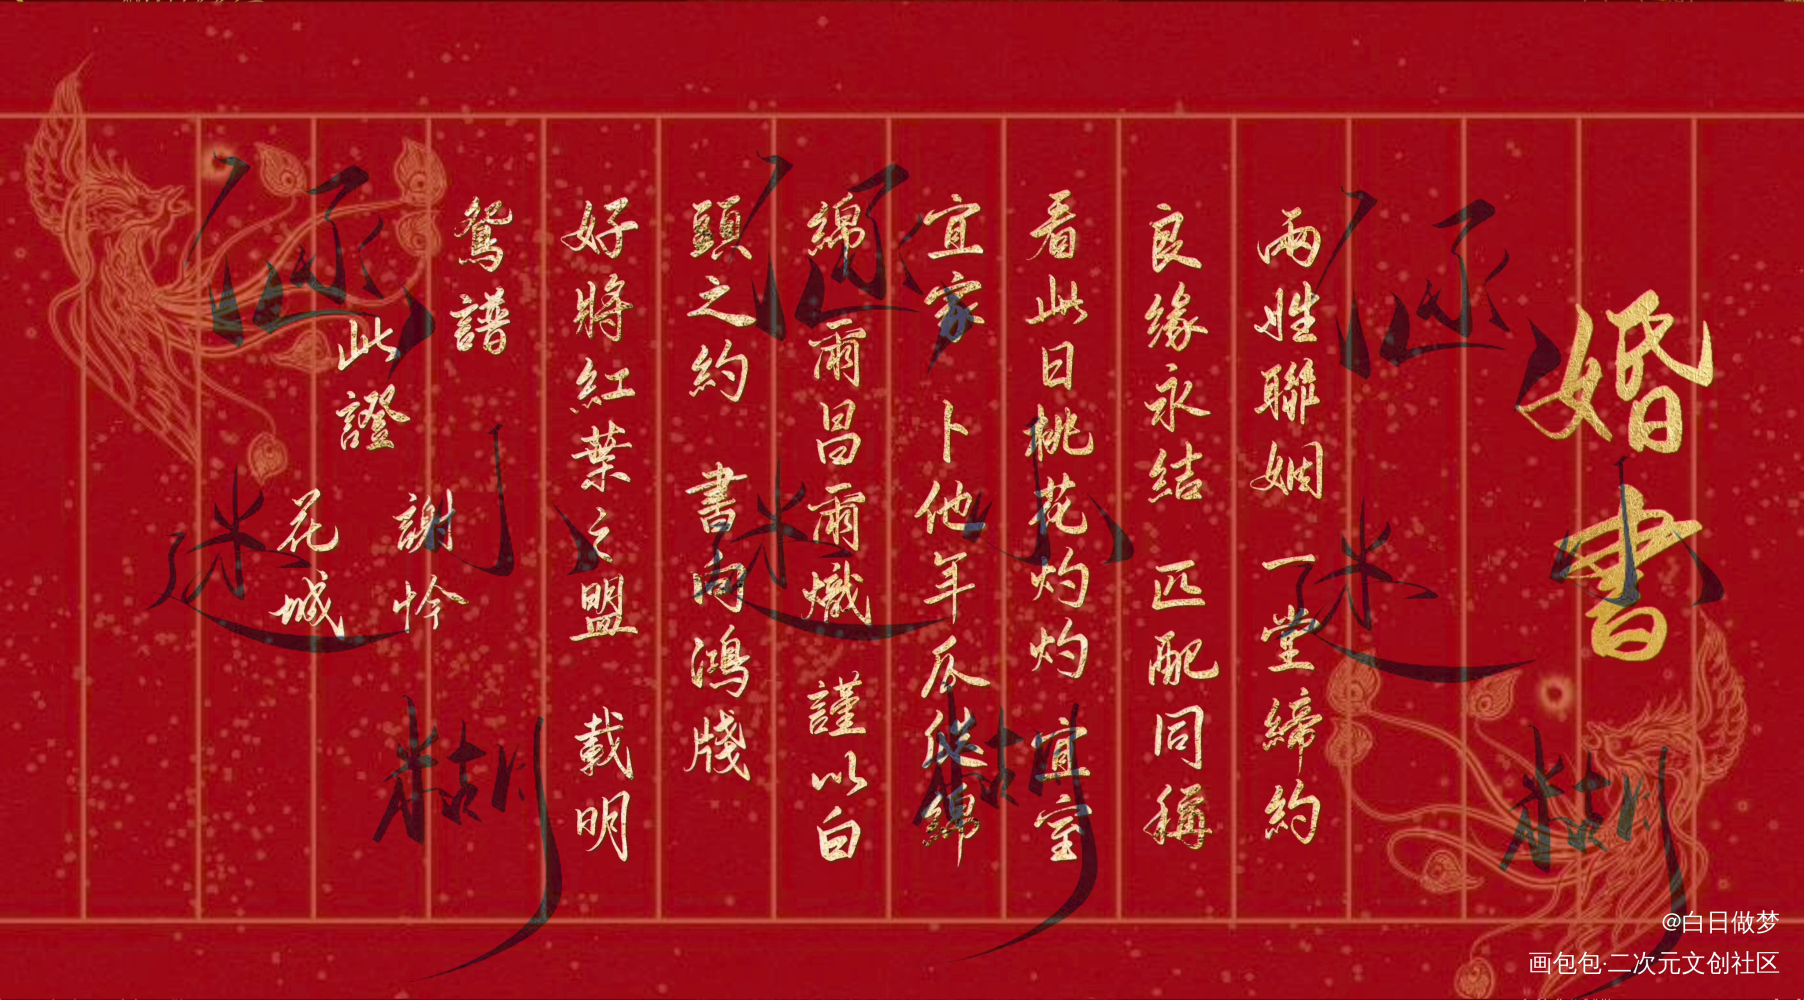 婚書
兩姓聯姻 一堂締約
良緣永結 匹配同稱
看此日桃花灼灼 宜室
宜家 卜他年瓜瓞綿
綿 爾昌爾熾 謹以白
頭之約 書向鴻牋
好將紅葉之盟 載明
鴛譜
此證
謝怜
花城
@白日做梦
画包包·二次元文创社区